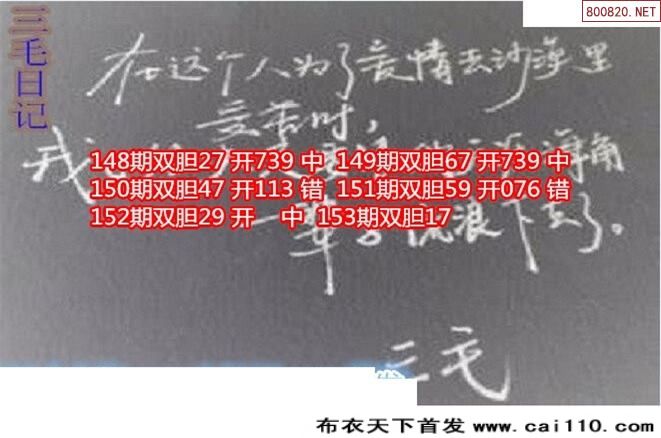 800820.NET
三毛日记
在这个人为了爱情去沙漠里
受苦时,
我
角
148期双胆27 开739 中 149期双胆67 开739 中
150期双胆47 开113 错 151期双胆59 开076 错
152期双胆29 开 中 153期双胆17
一辈子流浪下去了。
三毛
布衣天下首发 www.cai110.com